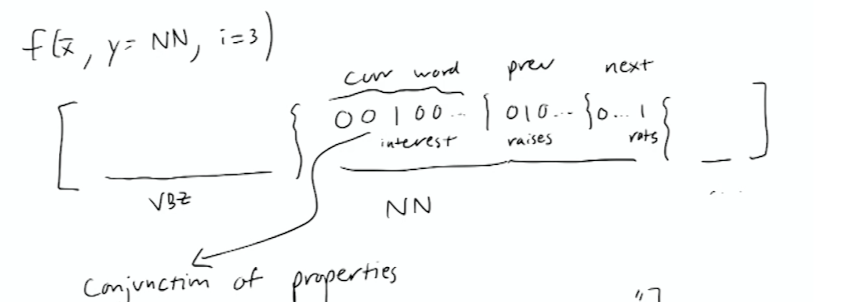 f(x̄, y= NN, i=3)
curr word prev next
[ { 00100... | 010... } 0...1 { ]
interest raises rats
VBZ NN ....
Conjunction of properties
"]